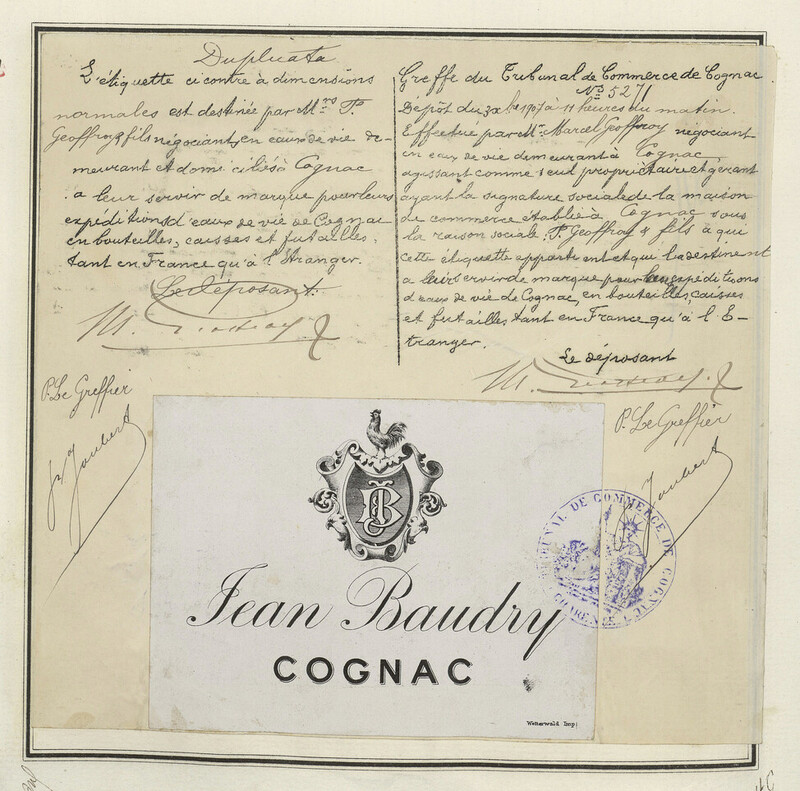 Duplicata
L'étiquette ci contre à dimensions
normales est destinée par Mrs P.
Geoffroy & fils négociant, en eaux de vie de-
meurant et domiciliés à Cognac
a leur servir de marque pour leurs
expéditions d'eaux de vie de Cognac
en bouteilles, caisses et futailles,
tant en France qu'à l'Etranger.
Le déposant.
P. Le Greffier
Joubert
Greffe du Tribunal de Commerce de Cognac
No 5271
Dépôt du 1907 à 11 heures du matin.
Effectué par Mr Marcel Geoffroy négociant
en eaux de vie demeurant à Cognac
agissant comme seul propriétaire et gérant
ayant la signature sociale de la maison
de commerce établie à Cognac sous
la raison sociale P. Geoffroy & fils à qui
cette étiquette appartient et qui la destinent
a leur servir de marque pour leurs expéditions
d'eaux de vie de Cognac, en bouteilles, caisses
et futailles tant en France qu'à l'E-
tranger.
Le déposant
P. Le Greffier
Joubert
JB
Jean Baudry
COGNAC
Wetterwald Imp
TRIBUNAL DE COMMERCE DE COGNAC
CHARENTE